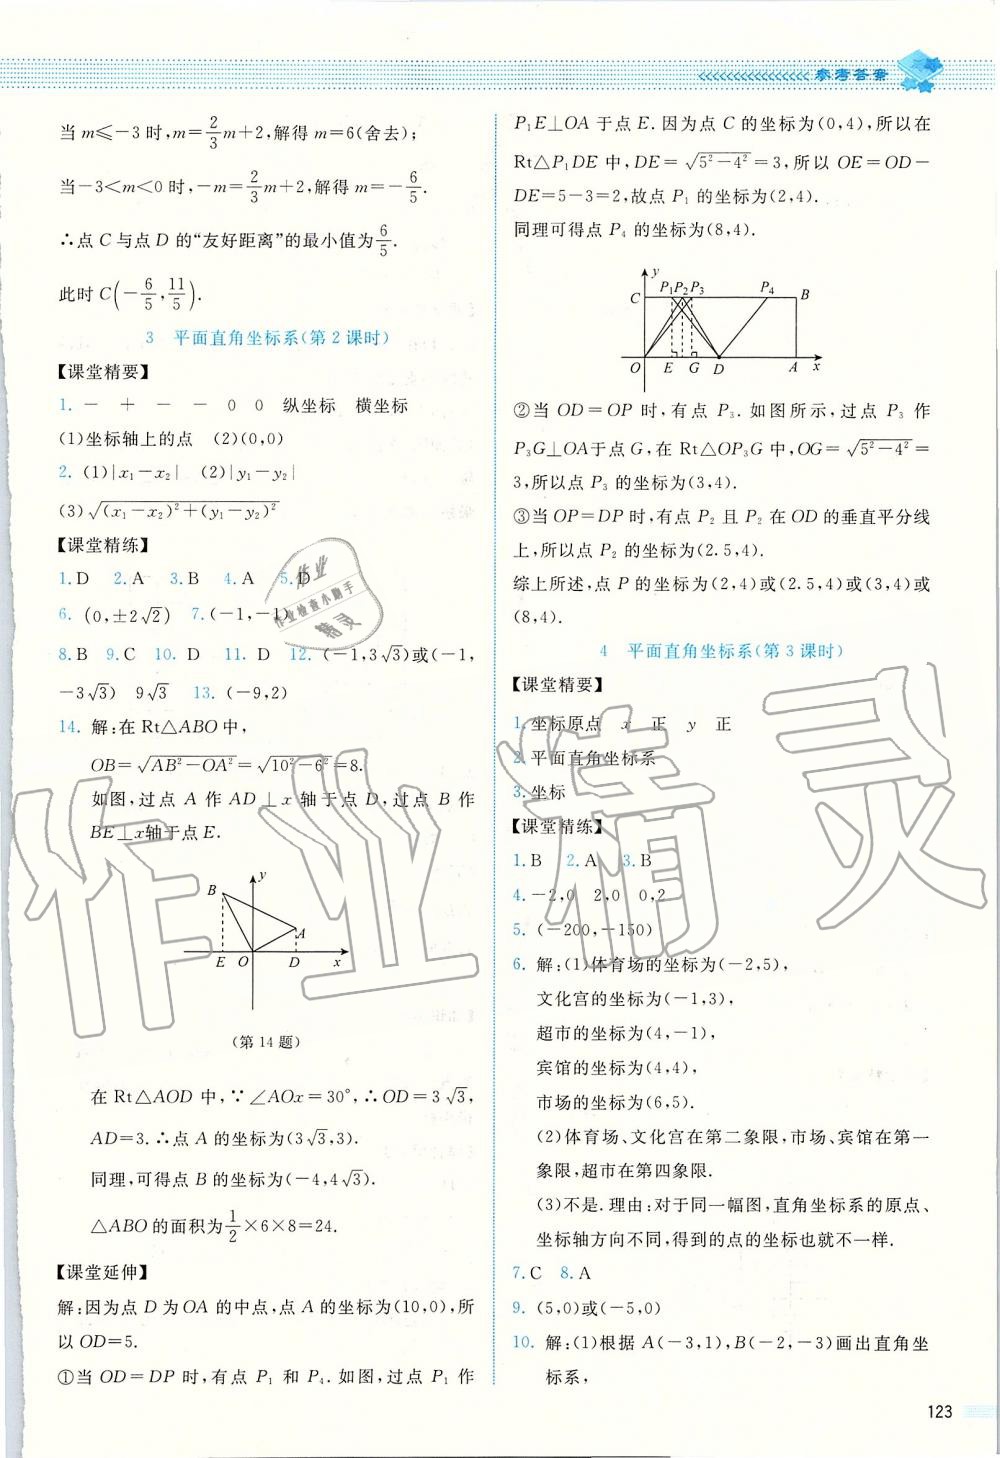 参考答案
当 m≤－3 时，m＝2/3 m＋2，解得 m＝6(舍去)；
当－3＜m＜0 时，－m＝2/3 m＋2，解得 m＝－6/5.
∴点 C 与点 D 的“友好距离”的最小值为 6/5.
此时 C(－6/5，11/5).
3 平面直角坐标系(第 2 课时)
【课堂精要】
1. － ＋ － － 0 0 纵坐标 横坐标
(1)坐标轴上的点 (2)(0,0)
2. (1)|x₁－x₂| (2)|y₁－y₂|
(3)√((x₁－x₂)²＋(y₁－y₂)²)
【课堂精练】
1. D 2. A 3. B 4. A 5. D
6. (0,±2√2) 7. (－1,－1)
8. B 9. C 10. D 11. D 12. (－1,3√3)或(－1,
－3√3) 9√3 13. (－9,2)
14. 解:在 Rt△ABO 中,
OB＝√(AB²－OA²)＝√(10²－6²)＝8.
如图,过点 A 作 AD⊥x 轴于点 D,过点 B 作
BE⊥x轴于点 E.
y
B
A
E O D x
(第 14 题)
在 Rt△AOD 中,∵∠AOx＝30°,∴OD＝3√3,
AD＝3.∴点 A 的坐标为(3√3,3).
同理,可得点 B 的坐标为(－4,4√3).
△ABO 的面积为 1/2×6×8＝24.
【课堂延伸】
解:因为点 D 为 OA 的中点,点 A 的坐标为(10,0),所
以 OD＝5.
①当 OD＝DP 时,有点 P₁ 和 P₄. 如图,过点 P₁ 作
P₁E⊥OA 于点 E. 因为点 C 的坐标为(0,4),所以在
Rt△P₁DE 中,DE＝√(5²－4²)＝3,所以 OE＝OD－
DE＝5－3＝2,故点 P₁ 的坐标为(2,4).
同理可得点 P₄ 的坐标为(8,4).
y
C P₁ P₂ P₃ P₄ B
O E G D A x
②当 OD＝OP 时,有点 P₃. 如图所示,过点 P₃ 作
P₃G⊥OA于点 G,在 Rt△OP₃G 中,OG＝√(5²－4²)＝
3,所以点 P₃ 的坐标为(3,4).
③当 OP＝DP 时,有点 P₂ 且 P₂ 在 OD 的垂直平分线
上,所以点 P₂ 的坐标为(2.5,4).
综上所述,点 P 的坐标为(2,4)或(2.5,4)或(3,4)或
(8,4).
4 平面直角坐标系(第 3 课时)
【课堂精要】
1. 坐标原点 x 正 y 正
2. 平面直角坐标系
3. 坐标
【课堂精练】
1. B 2. A 3. B
4. －2,0 2,0 0,2
5. (－200,－150)
6. 解:(1)体育场的坐标为(－2,5),
文化宫的坐标为(－1,3),
超市的坐标为(4,－1),
宾馆的坐标为(4,4),
市场的坐标为(6,5).
(2)体育场、文化宫在第二象限,市场、宾馆在第一
象限,超市在第四象限.
(3)不是. 理由:对于同一幅图,直角坐标系的原点、
坐标轴方向不同,得到的点的坐标也就不一样.
7. C 8. A
9. (5,0)或(－5,0)
10. 解:(1)根据 A(－3,1),B(－2,－3)画出直角坐
标系,
123
作业精灵
作业
作业检查小助手
精灵